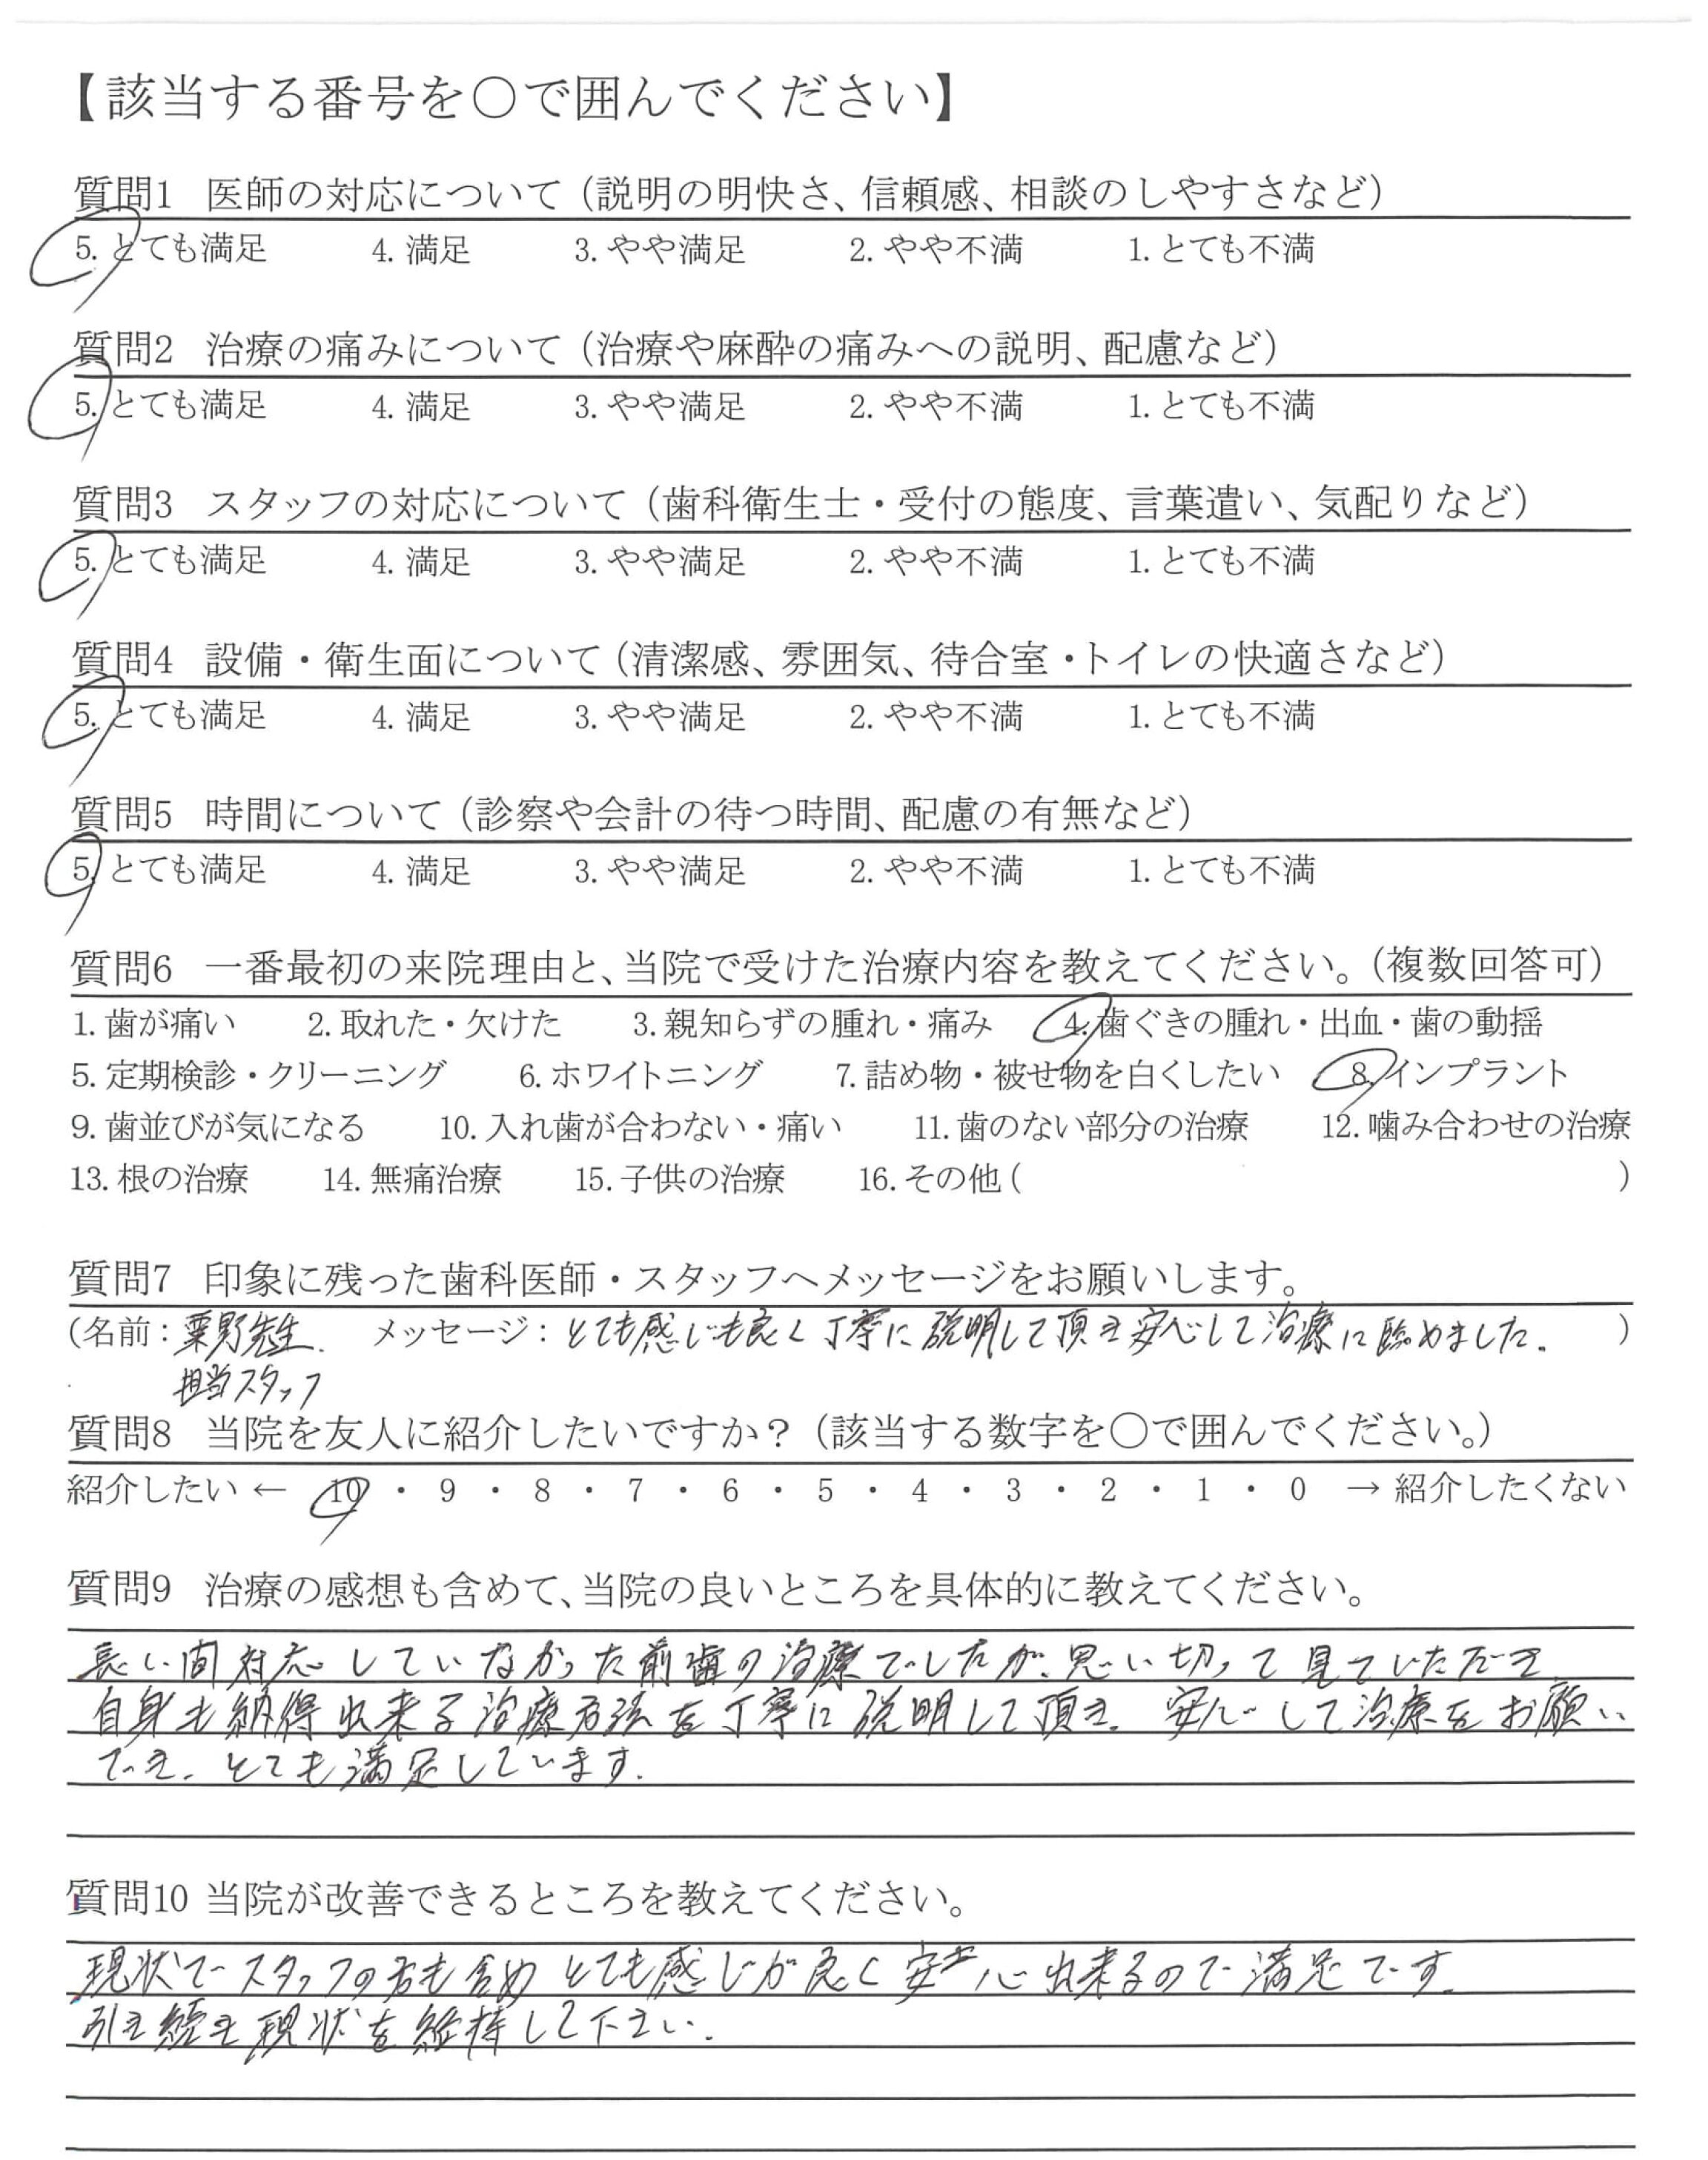 【該当する番号を〇で囲んでください】
質問1 医師の対応について（説明の明快さ、信頼感、相談のしやすさなど）
5. とても満足 4. 満足 3. やや満足 2. やや不満 1. とても不満
質問2 治療の痛みについて（治療や麻酔の痛みへの説明、配慮など）
5. とても満足 4. 満足 3. やや満足 2. やや不満 1. とても不満
質問3 スタッフの対応について（歯科衛生士・受付の態度、言葉遣い、気配りなど）
5. とても満足 4. 満足 3. やや満足 2. やや不満 1. とても不満
質問4 設備・衛生面について（清潔感、雰囲気、待合室・トイレの快適さなど）
5. とても満足 4. 満足 3. やや満足 2. やや不満 1. とても不満
質問5 時間について（診察や会計の待つ時間、配慮の有無など）
5. とても満足 4. 満足 3. やや満足 2. やや不満 1. とても不満
質問6 一番最初の来院理由と、当院で受けた治療内容を教えてください。（複数回答可）
1. 歯が痛い 2. 取れた・欠けた 3. 親知らずの腫れ・痛み 4. 歯ぐきの腫れ・出血・歯の動揺
5. 定期検診・クリーニング 6. ホワイトニング 7. 詰め物・被せ物を白くしたい 8. インプラント
9. 歯並びが気になる 10. 入れ歯が合わない・痛い 11. 歯のない部分の治療 12. 噛み合わせの治療
13. 根の治療 14. 無痛治療 15. 子供の治療 16. その他（ ）
質問7 印象に残った歯科医師・スタッフへメッセージをお願いします。
（名前：栗野先生. メッセージ：とても感じも良く丁寧に説明して頂き安心して治療に臨めました。）
担当スタッフ
質問8 当院を友人に紹介したいですか？（該当する数字を〇で囲んでください。）
紹介したい ← 10 ・ 9 ・ 8 ・ 7 ・ 6 ・ 5 ・ 4 ・ 3 ・ 2 ・ 1 ・ 0 → 紹介したくない
質問9 治療の感想も含めて、当院の良いところを具体的に教えてください。
長い間対応していなかった前歯の治療でしたが、思い切って見ていただき、
自身も納得出来る治療方法を丁寧に説明して頂き、安心して治療をお願い
でき、とても満足しています。
質問10 当院が改善できるところを教えてください。
現状でスタッフの方も含めとても感じが良く安心出来るので満足です。
引き続き現状を維持して下さい。